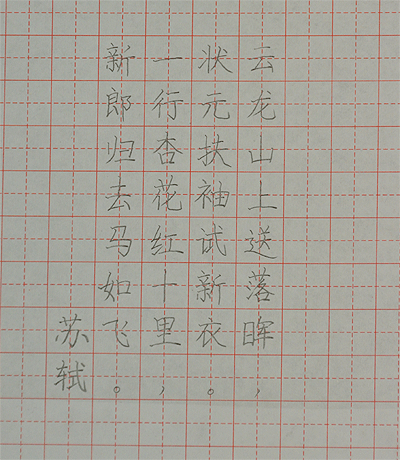 云龙山上送落晖，
状元扶袖试新衣。
一行杏花红十里，
新郎归去马如飞。
苏轼